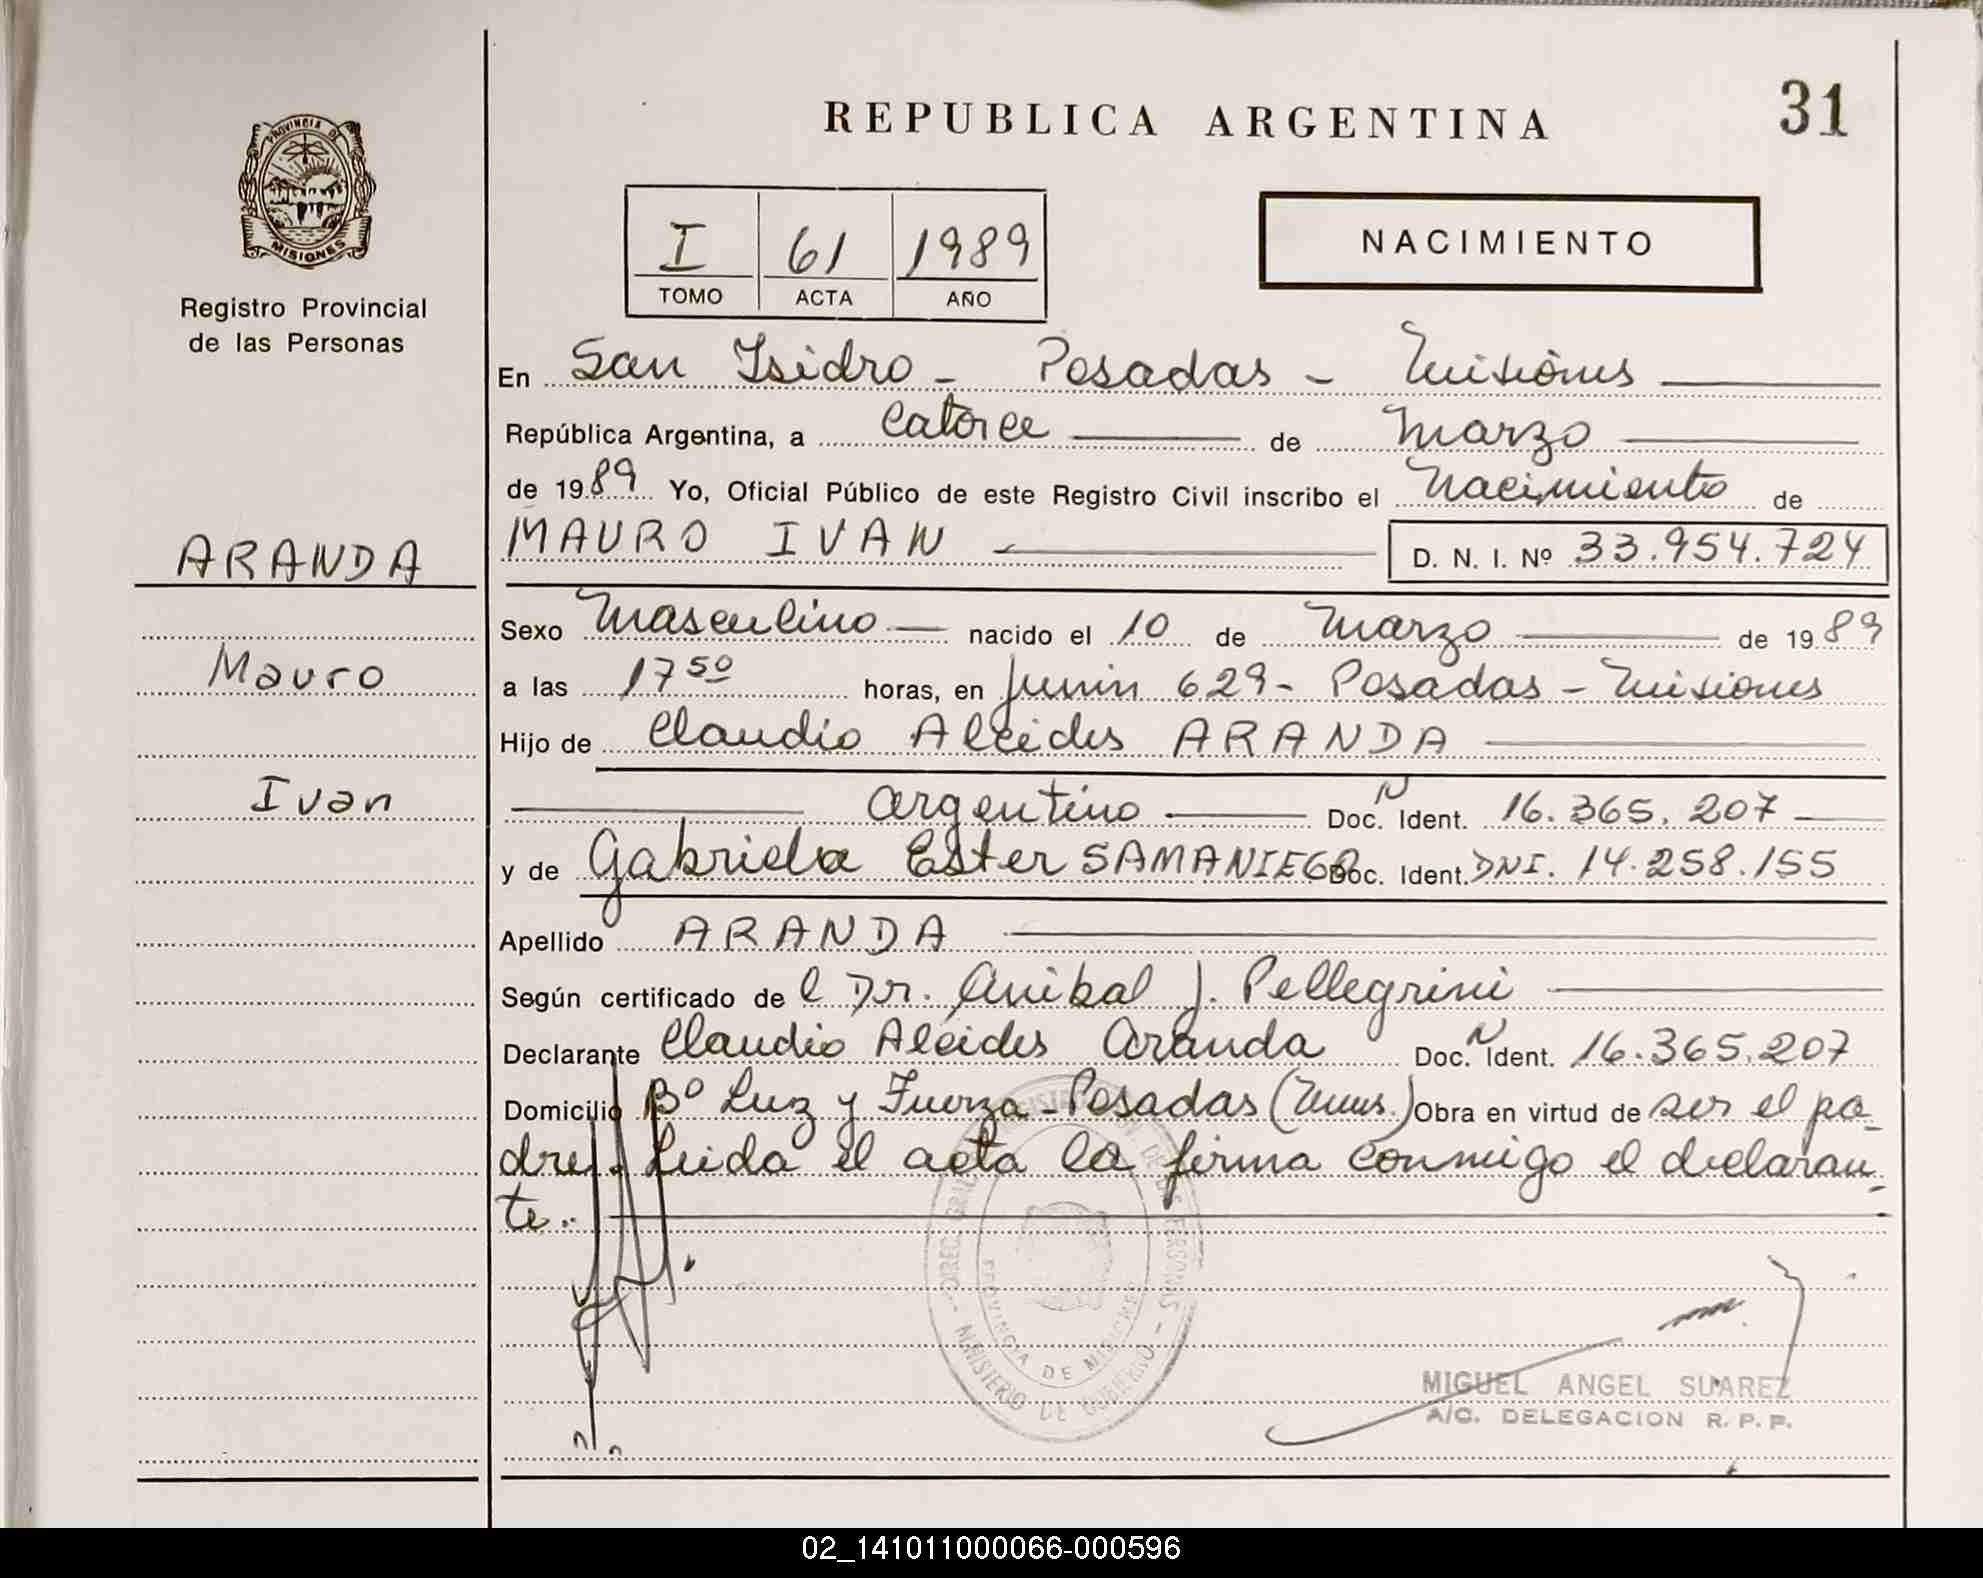 REPUBLICA ARGENTINA
31
PROVINCIA DE
MISIONES
Registro Provincial
de las Personas
I 61 1989
TOMO ACTA AÑO
NACIMIENTO
En San Isidro - Posadas - Misiones
República Argentina, a Catorce de Marzo
de 1989 Yo, Oficial Público de este Registro Civil inscribo el Nacimiento de
ARANDA
MAURO IVAN D. N. I. Nº 33.954.724
Sexo Masculino nacido el 10 de Marzo de 1989
Mauro
a las 17 50 horas, en Junin 629 - Posadas - Misiones
Hijo de Claudio Alcides ARANDA
Ivan
argentino Doc. N Ident. 16.365.207
y de Gabriela Ester SAMANIEGO Doc. Ident. DNI. 14.258.155
Apellido ARANDA
Según certificado de l Dr. Anibal J. Pellegrini
Declarante Claudio Alcides Aranda Doc. N Ident. 16.365.207
Domicilio Bº Luz y Fuerza - Posadas (Mnes.) Obra en virtud de ser el pa-
dre. Leida el acta la firma conmigo el declaran-
te..
DIREC. GRAL. DE LAS PERSONAS - MINISTERIO DE GOBIERNO -
PROVINCIA DE MISIONES
MIGUEL ANGEL SUAREZ
A/C. DELEGACION R. P. P.
02_141011000066-000596